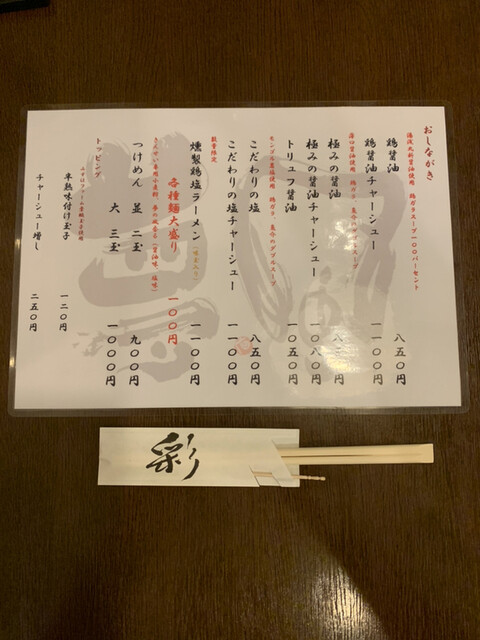 おしながき
湯浅丸新醤油使用 鶏ガラスープ一〇〇パーセント
鶏醤油 八五〇円
鶏醤油チャーシュー 一一〇〇円
薄口醤油使用 鶏ガラ、魚介のダブルスープ
極みの醤油
極みの醤油チャーシュー 一〇八〇円
トリュフ醤油 一〇五〇円
モンゴル岩塩使用 鶏ガラ、魚介のダブルスープ
こだわりの塩 八五〇円
こだわりの塩チャーシュー 一一〇〇円
数量限定
燻製鶏塩ラーメン(味玉入り) 一一〇〇円
各種麺大盛り 一〇〇円
つけめん 並 二玉 九〇〇円
大 三玉 一〇〇〇円
トッピング
半熟味付け玉子 一二〇円
チャーシュー増し 二五〇円
彩